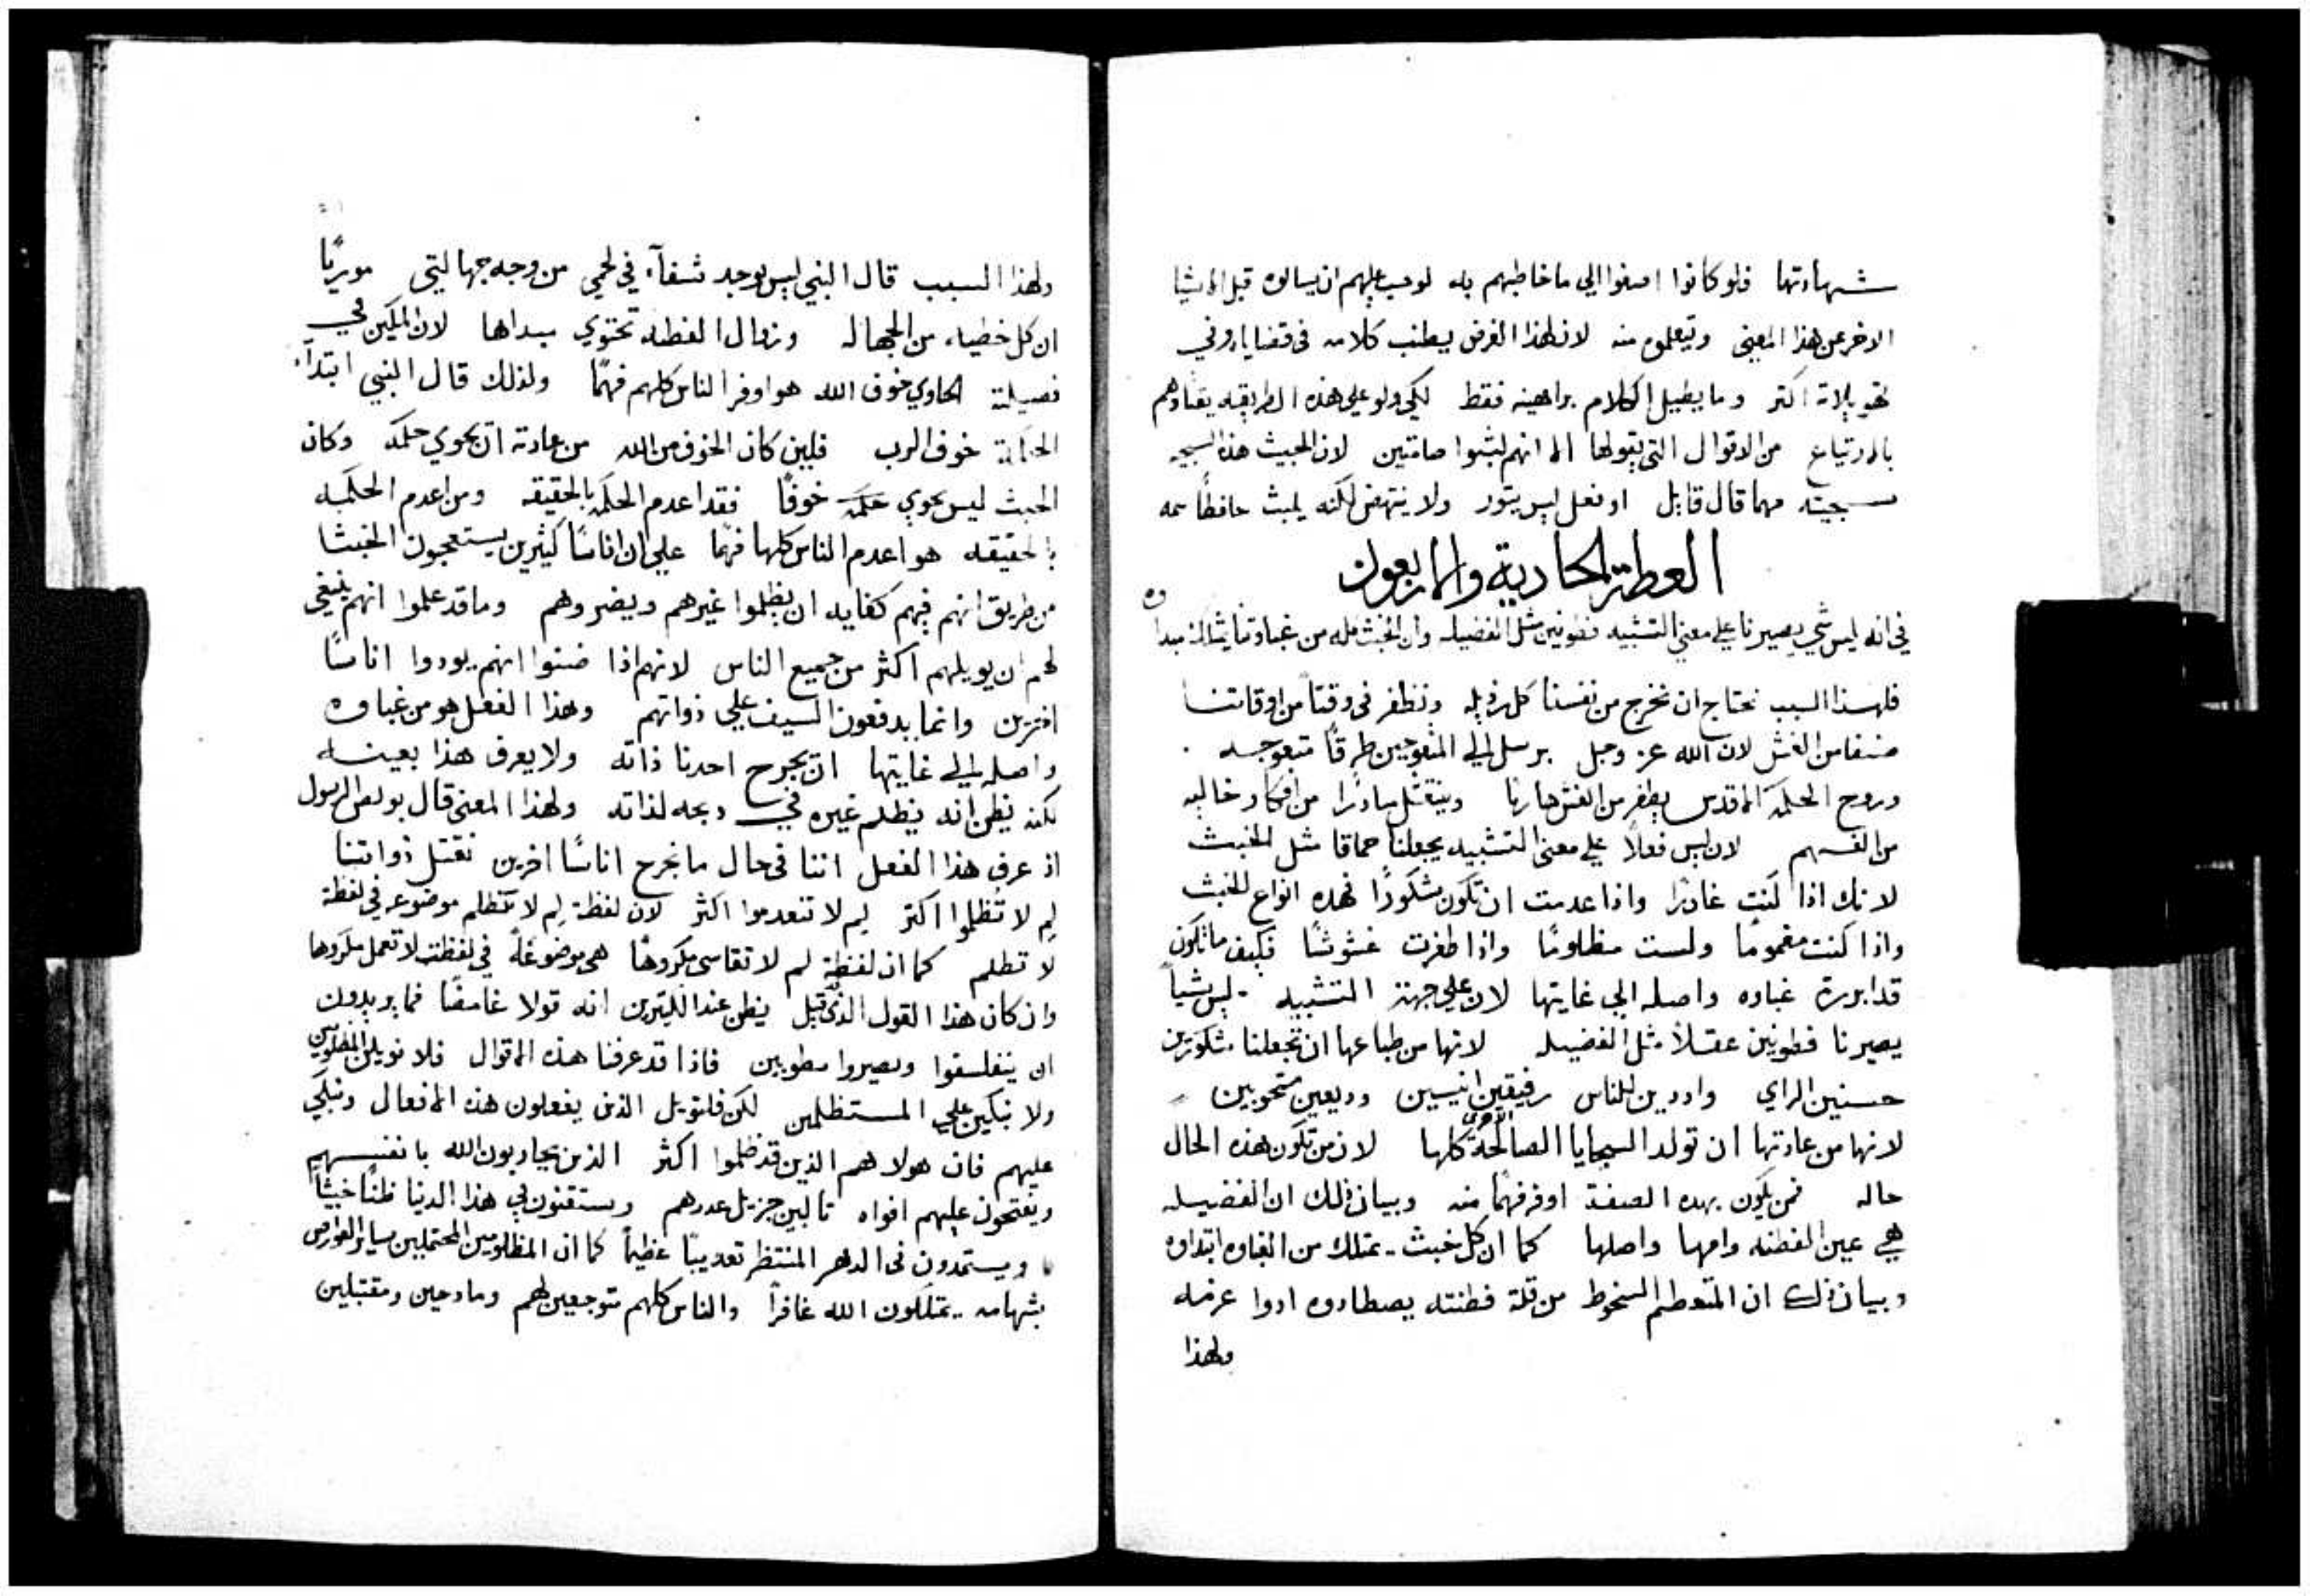 شهادتها فلو كانوا اصغوا الي ما خاطبهم به لوجب عليهم ان يسالوه قبل الاشيا
الاخر عن هذا المعني ويتعلموه منه لان لهذا الغرض يطنب كلامه في قضايا
اكثر وما يطيل الكلام براهينه فقط لكي ولو علي هذه الطريقه يقتادهم
بالارتياع من الاقوال التي يقولها الا انهم لبثوا صامتين لان الخبيث هذه السجيه
سجيته مهما قال قايل او فعل ليس يثور ولا ينتهض لكنه يلبث حافظًا سمه
العظة الحادية والاربعون
في انه ليس شي يصيرنا علي معني التشبيه فطونين مثل الفضيله وان الخبث كله من غباوتنا يشا المبدا
فلهذا السبب نحتاج ان نخرج من نفسنا كل رذيله ونظفر في وقتًا من اوقاتنا
صنفا من الغش لان الله عز وجل يرسل الي المتعوجين طرقًا متعوجه
وروح الحكمة الاقدس يطفر من الغش هاربا وينتقل مبادرًا من افكار خاليه
من الفهم لان ليس فعلًا علي معني التشبيه يجعلنا حماقا مثل الخبث
لانك اذا كنت غادرًا واذا عدمت ان تكون شكورًا فهذه انواع للخبث
واذا كنت مغمومًا ولست مظلومًا واذا ظفرت غشوشًا فكيف ما تكون
قد ابرزة غباوه واصله الي غايتها لان علي جهة التشبيه ليس شيا
يصيرنا فطونين عقلاً مثل الفضيله لانها من طباعها ان تجعلنا شكورين
حسنين الراي واددين للناس رفيقين انيسين وديعين متحوبين
لانها من عادتها ان تولد السجايا الصالحة الاخري كلها لان من تكون هذه الحال
حاله فمن يكون بهذه الصفة اوفر فهمًا منه وبيان ذلك ان الفضيله
هي عين الفطنه وامها واصلها كما ان كل خبث يمتلك من الغباوه ابتداوه
وبيان ذلك ان المتعظم السخوط من قلة فطنته يصطادوه ادوا عرضه
ولهذا
ولهذا السبب قال النبي ليس يوجد شفآء في لحمي من وجه جهالتي موريًا
ان كل خطياه من الجهاله وزوال الفطنه تحتوي مبداها لان المكين في
فضيلته الحاوي خوف الله هو اوفر الناس كلهم فهمًا ولذلك قال النبي ابتداء
الحكمة خوف الرب فلين كان الخوف من الله من عادته ان يحوي حكمه وكان
الخبث ليس يحوي حكمه خوفًا فقد اعدم الحكمه بالحقيقه ومن اعدم الحكمه
بالحقيقه هو اعدم الناس كلها فهمًا علي ان اناسًا كثيرين يستعجبون الخبثا
من طريق انهم فيهم كفايه ان يظلموا غيرهم ويضروهم وما قد علموا انهم ينبغي
لهم ان يويلهم اكثر من جميع الناس لانهم اذا ضنوا انهم يوددوا اناسًا
اخرين وانما يدفعون السيف علي ذواتهم وهذا الفعل هو من غباوه
واصله الي غايتها ان يجرح احدنا ذاته ولا يعرف هذا بعينه
لكنه يظن انه يظلم غيره في ذبحه لذاته ولهذا المعني قال بولص الرسول
اذ عرف هذا الفعل اننا في حال ما نجرح اناسًا اخرين نقتل ذواتنا
لم لا تُظلموا اكثر لم لا تعدموا اكثر لان لفظة لم لا تنظلم موضوعه في لفظة
لا تظلم كما ان لفظة لم لا تقاسي مكروهًا هي موضوعةً في لفظت لا تعمل مكروها
وان كان هذا القول الذي قيل يظن عند الكثيرين انه قولا غامضًا فما يريدون
ان يتفلسفوا ويصيروا مطوبين فاذا قد عرفنا هذه الاقوال فلا نويل المظلومين
ولا نبكين علي المستظلمين لكن فلنويل الذين يفعلون هذه الافعال ونبكي
عليهم فان هولا هم الذين قد ظلموا اكثر الذين يحاربون الله بانفسهم
ويفتحون عليهم افواه ثالبين جزيل عددهم ويستقنون في هذا الدنيا ظنًا خبيثًا
ويستمدون في الدهر المنتظر تعذيبًا عظيمًا كما ان المظلومين المحتملين ساير العوارض
بشهامه يمتلكون الله غافرًا والناس كلهم متوجعين لهم ومادحين ومقتبلين